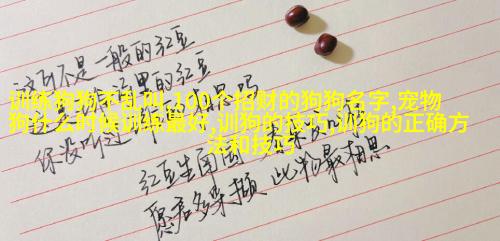 这可不是一般的红豆
训练狗狗不乱叫,100个招财的狗狗名字,宠物
狗什么时候训练最好,训狗的技巧,训狗的正确方
法和技巧
你没听过
红豆生南国 春来发几枝
愿君多采撷 此物最相思